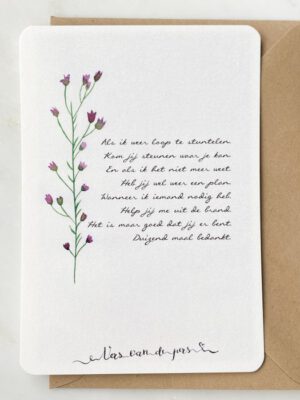 Als ik weer loop te stuntelen.
Kom jij steunen waar je kan.
En als ik het niet meer weet.
Heb jij wel weer een plan.
Wanneer ik iemand nodig heb.
Help jij me uit de brand.
Het is maar goed dat jij er bent.
Duizend maal bedankt.
Vers van de pers